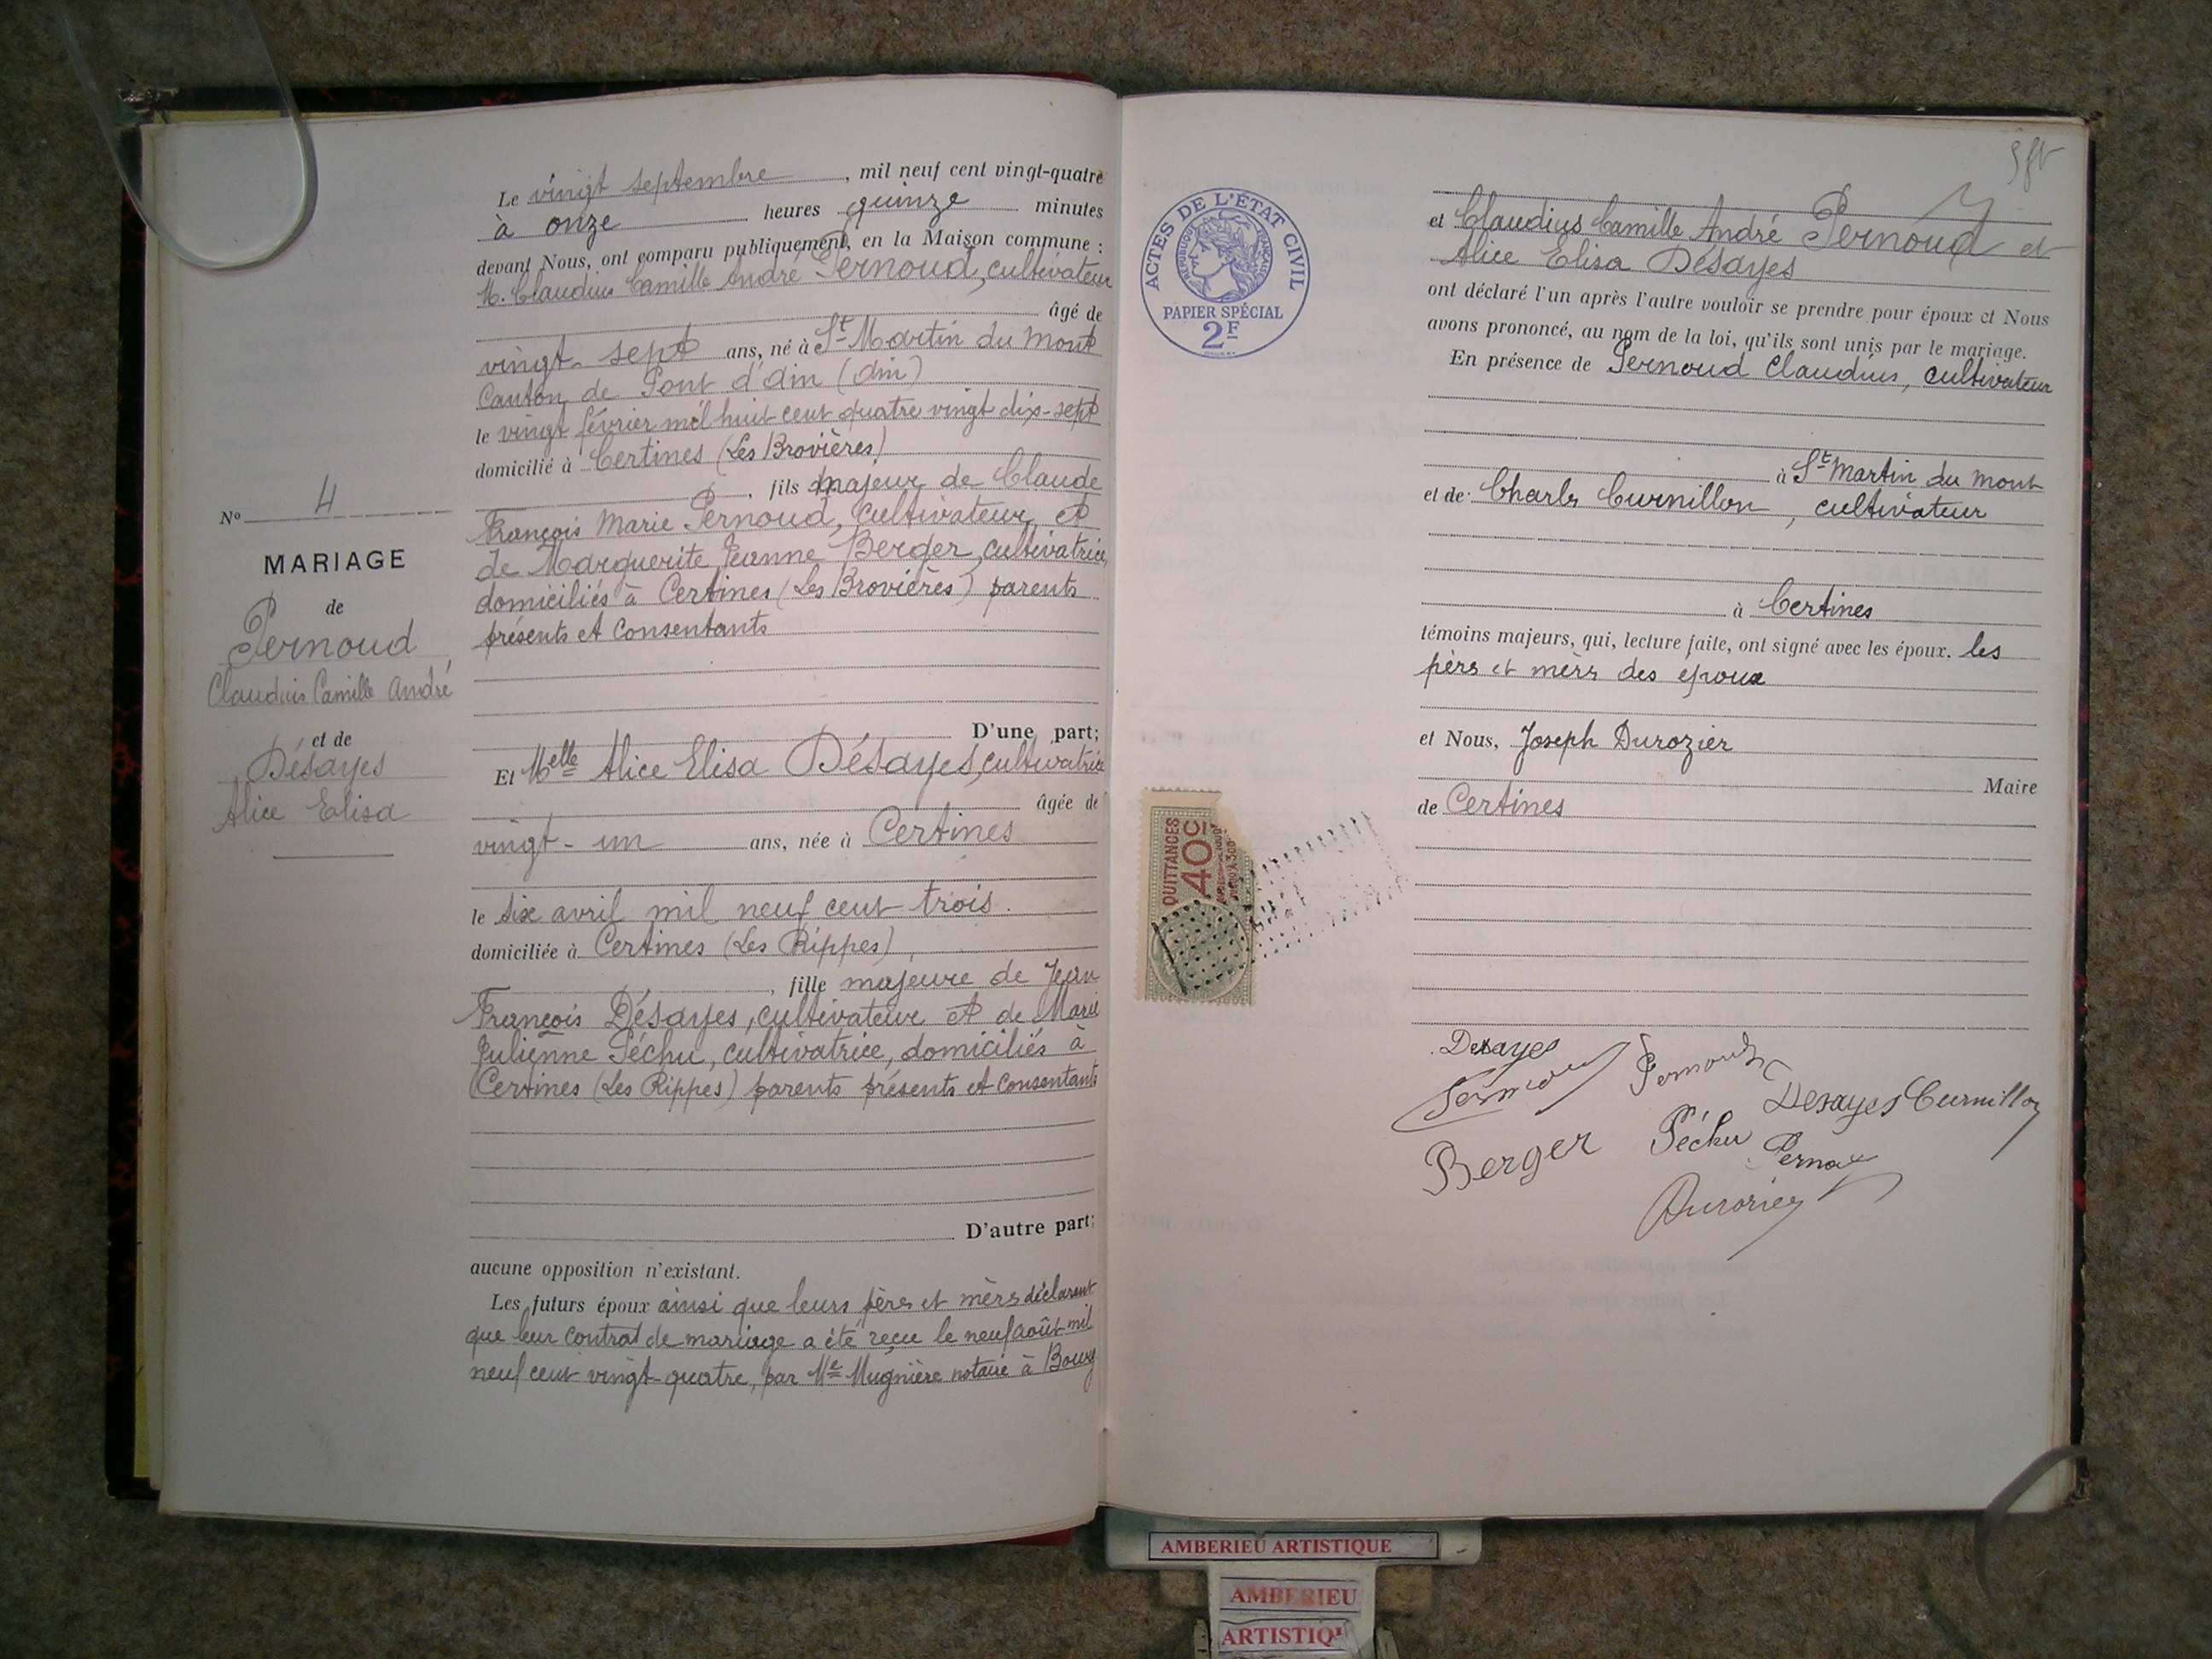 Le vingt septembre, mil neuf cent vingt-quatre
à onze heures quinze minutes
devant Nous, ont comparu publiquement, en la Maison commune :
M. Claudius Camille André Pernoud, cultivateur
âgé de
vingt-sept ans, né à St Martin du mont
Canton de Pont d'Ain (Ain)
le vingt février mil huit cent quatre vingt dix-sept
domicilié à Certines (Les Brovières)
, fils majeur de Claude
François Marie Pernoud, cultivateur, et
de Marguerite Jeanne Berger, cultivatrice,
domiciliés à Certines (Les Brovières) parents
présents et consentants
D'une part;
Et Melle Alice Elisa Désayes, cultivatrice
âgée de
vingt-un ans, née à Certines
le six avril mil neuf cent trois.
domiciliée à Certines (Les Rippes)
, fille majeure de Jean
François Désayes, cultivateur et de Marie
Julienne Péchu, cultivatrice, domiciliés à
Certines (Les Rippes) parents présents et consentants
D'autre part;
aucune opposition n'existant.
Les futurs époux ainsi que leurs pères et mères déclarent
que leur contrat de mariage a été reçu le neuf août mil
neuf cent vingt-quatre, par Me Mugnière notaire à Bourg
No 4
MARIAGE
de
Pernoud
Claudius Camille André,
et de
Désayes
Alice Elisa
ACTES DE L'ÉTAT CIVIL
RÉPUBLIQUE FRANÇAISE
PAPIER SPÉCIAL
2F
et Claudius Camille André Pernoud et
Alice Elisa Désayes
ont déclaré l'un après l'autre vouloir se prendre pour époux et Nous
avons prononcé, au nom de la loi, qu'ils sont unis par le mariage.
En présence de Pernoud Claudius, cultivateur
à St Martin du mont
et de Charles Curnillon, cultivateur
à Certines
témoins majeurs, qui, lecture faite, ont signé avec les époux. les
pères et mères des époux
et Nous, Joseph Durozier
Maire
de Certines
QUITTANCES
40c
Desayes
Pernoud
Pernoud
Desayes
Curnillon
Berger
Péchu
Pernoud
Durozier
AMBERIEU ARTISTIQUE
AMBERIEU
ARTISTIQ